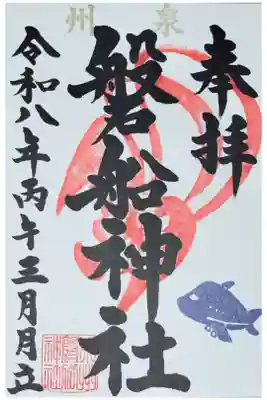 泉州
奉拝
磐船神社
令和八年丙午三月月立